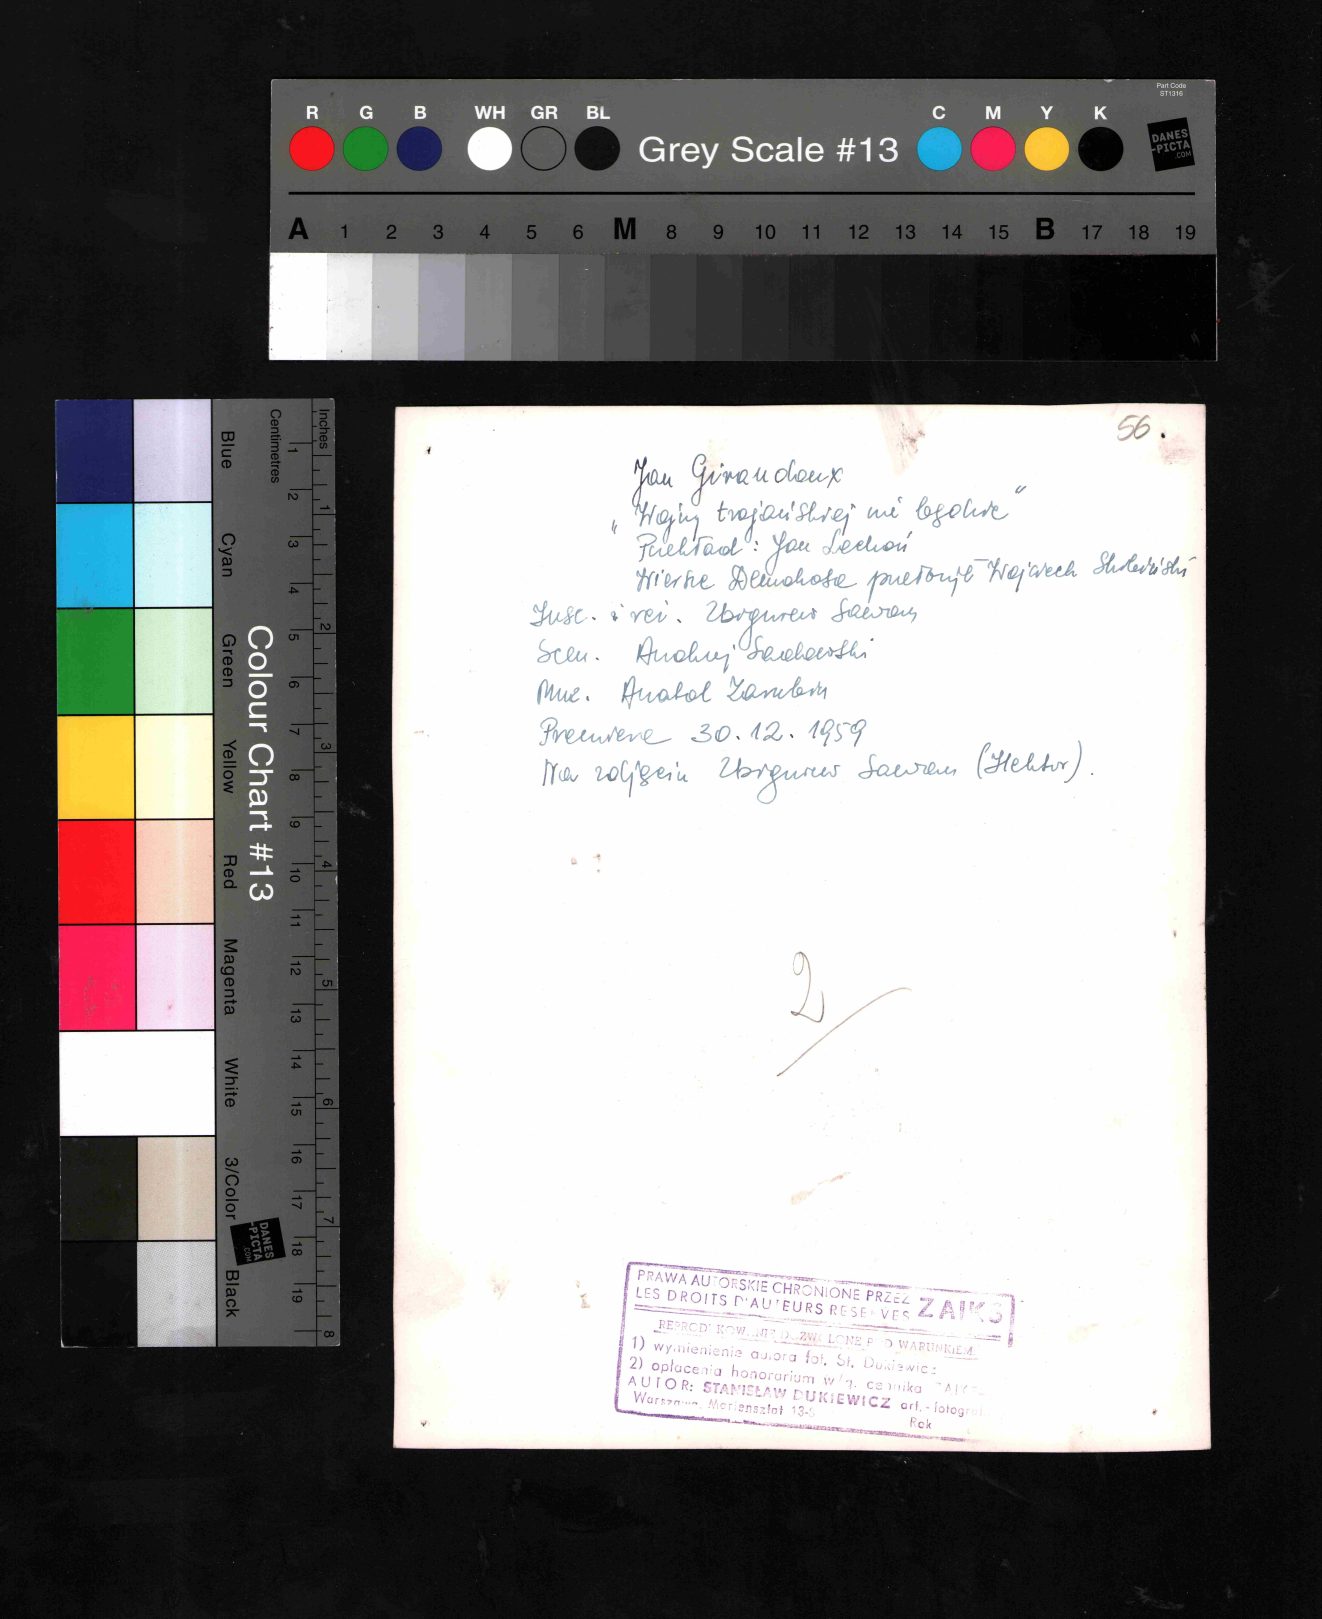 Part Code
ST1316
R G B WH GR BL Grey Scale #13 C M Y K
DANES
-PICTA
.COM
A 1 2 3 4 5 6 M 8 9 10 11 12 13 14 15 B 17 18 19
Colour Chart #13
Blue
Cyan
Green
Yellow
Red
Magenta
White
3/Color
Black
DANES
-PICTA
.COM
Centimetres
1 2 3 4 5 6 7 8 9 10 11 12 13 14 15 16 17 18 19
Inches
1 2 3 4 5 6 7 8
56.
Jan Giraudoux
„Wojny trojańskiej nie będzie”
Przekład: Jan Lechoń
Wiersze Demokosa przełożył Wojciech
Insc. i reż. Zbigniew Sawan
Scen. Andrzej Sadowski
Muz. Anatol Zarubin
Premiera 30.12.1959
Na zdjęciu Zbigniew Sawan (Hektor).
2
PRAWA AUTORSKIE CHRONIONE PRZEZ
LES DROITS D'AUTEURS RESERVES ZAIKS
REPRODUKOWANIE DOZWOLONE POD WARUNKIEM:
1) wymienienie autora fot. St. Dukiewicz
2) opłacenia honorarium w/g. cennika ZAIKS
AUTOR: STANISŁAW DUKIEWICZ art.-fotograf
Warszawa, Mariensztat 13-5
Rok